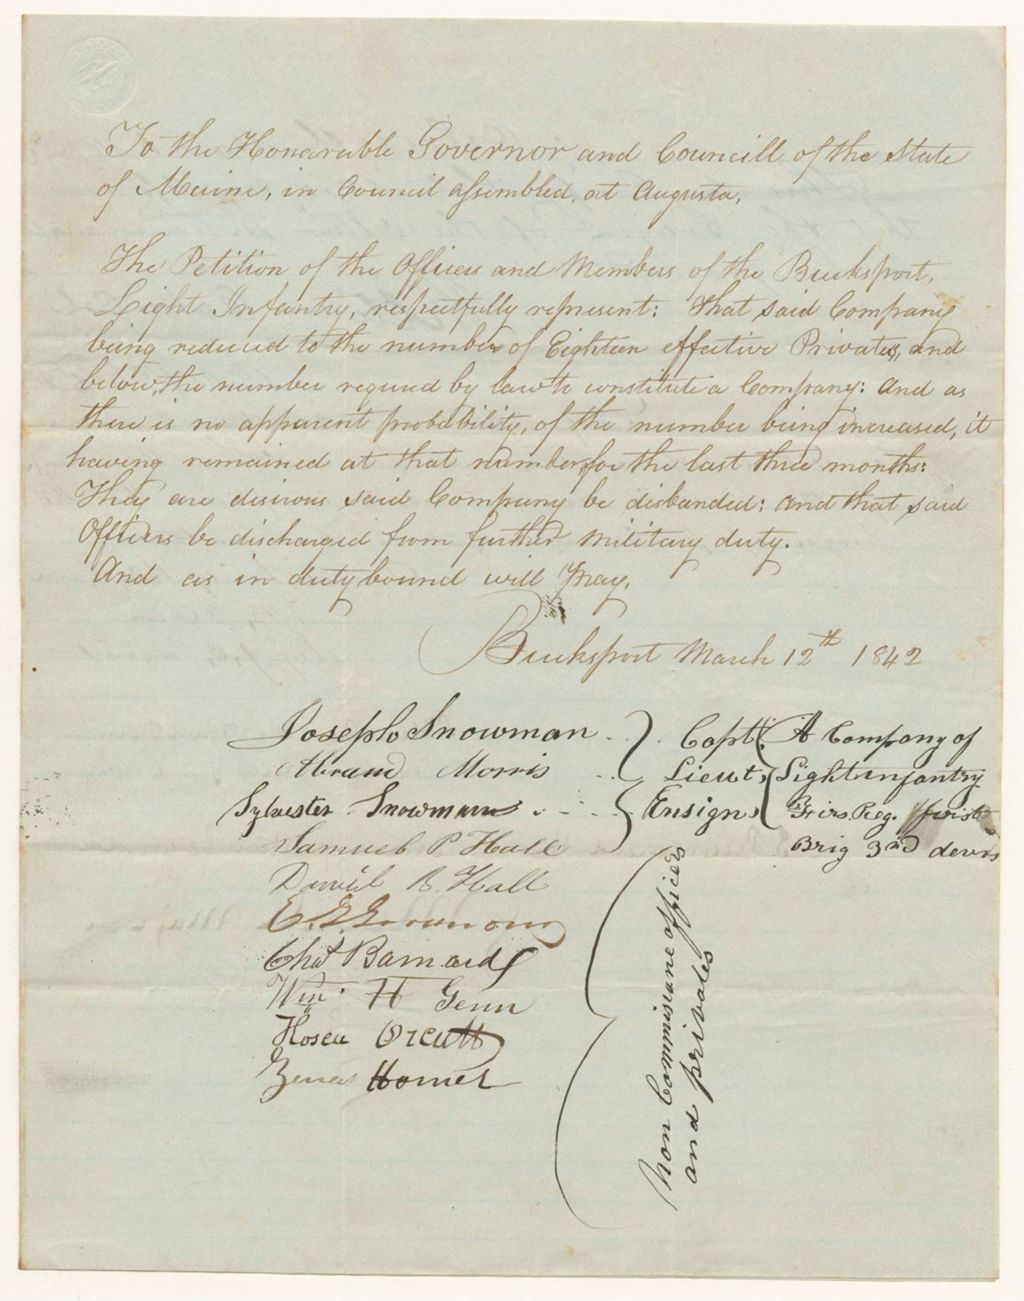 To the Honarable Governor and Councill of the State
of Maine, in Council assembled, at Augusta,
The Petition of the Officers and Members of the Bucksport,
Light Infantry, respectfully represent: That said Company
being reduced to the number of Eighteen effective Privates, and
below, the number requird by law to constitute a Company: and as
there is no apparent probability, of the number being increased, it
having remained at that number for the last three months:
They are disirous said Company be disbanded: and that said
Officers be discharged from further military duty.
And as in duty bound will Pray.
Bucksport March 12th 1842
Joseph Snowman . Capt. A Company of
Morris Lieut, Light infantry
Sylvester Snowman Ensign, Firs. Reg. first
Brig 3rd devis
Samuel P Hall
Daniel B. Hall
Chas Barnard
Wm. H Genn
Hosea Orcutt
Homer
Non Commissane officers
and privates